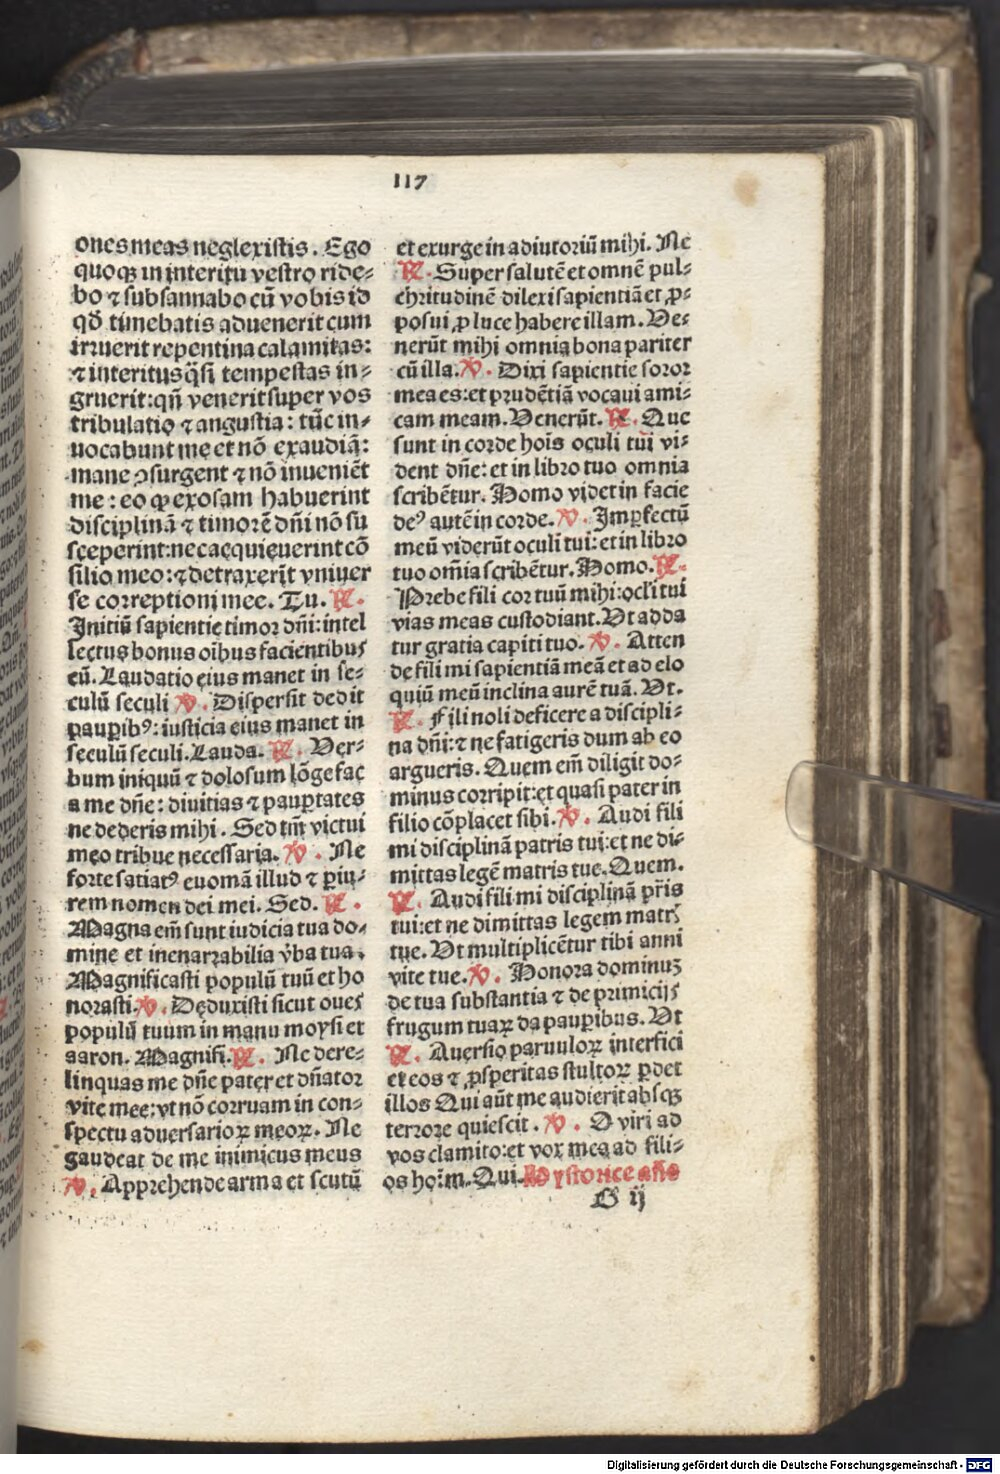 117
ones meas neglexistis. Ego
quoqꝫ in interitu vestro ride⸗
bo ⁊ subsannabo cū vobis id
qđ timebatis aduenerit cum
irruerit repentina calamitas:
⁊ interitus q̈si tempestas in⸗
gruerit: qn̄ venerit super vos
tribulatio ⁊ angustia: tūc in⸗
uocabunt me et nō exaudiā:
mane ꝯsurgent ⁊ nō inueniēt
me: eo ꝙ exosam habuerint
disciplinā ⁊ timorē dn̄i nō su
sceperint: nec acquieuerint cō
silio meo: ⁊ detraxerīt vniuer
se correptioni mee. Tu. ℟.
Initiū sapientie timor dn̄i: intel
lectus bonus oībus facientibus
eū. Laudatio eius manet in se⸗
culū seculi ℣. Dispersit dedit
pauꝑibꝰ: iusticia eius manet in
seculū seculi. Lauda. ℟. Ver⸗
bum iniquū ⁊ dolosum lōge fac
a me dn̄e: diuitias ⁊ pauꝑtates
ne dederis mihi. Sed tm̄ victui
meo tribue necessaria. ℣. Ne
forte satiatꝰ euomā illud ⁊ ꝑiu⸗
rem nomen dei mei. Sed. ℟.
Magna em̄ sunt iudicia tua do⸗
mine et inenarrabilia v̄ba tua.
Magnificasti populū tuū et ho
norasti. ℣. Deduxisti sicut oues
populū tuum in manu moysi et
aaron. Magnifi. ℟. Ne dere⸗
linquas me dn̄e pater et dn̄ator
vite mee: vt nō corruam in con⸗
spectu aduersarioꝝ meoꝝ. Ne
gaudeat de me inimicus meus
℣. Apprehende arma et scutū
et exurge in adiutoriū mihi. Ne
℟. Super salutē et omnē pul⸗
chritudinē dilexi sapientiā et ꝓ⸗
posui ꝓ luce habere illam. Ve⸗
nerūt mihi omnia bona pariter
cū illa. ℣. Dixi sapientie soror
mea es: et prudētiā vocaui ami⸗
cam meam. Venerūt. ℟. Que
sunt in corde hoīs oculi tui vi⸗
dent dn̄e: et in libro tuo omnia
scribētur. Homo videt in facie
deꝰ autē in corde. ℣. Imꝑfectū
meū viderūt oculi tui: et in libro
tuo om̄ia scribētur. Homo. ℟.
Prebe fili cor tuū mihi: ocl̄i tui
vias meas custodiant. Vt adda
tur gratia capiti tuo. ℣. Atten
de fili mi sapientiā meā et ad elo
quiū meū inclina aurē tuā. Vt.
℟. Fili noli deficere a discipli⸗
na dn̄i: ⁊ ne fatigeris dum ab eo
argueris. Quem em̄ diligit do⸗
minus corripit: et quasi pater in
filio cōplacet sibi. ℣. Audi fili
mi disciplinā patris tui: et ne di⸗
mittas legē matris tue. Quem.
℟. Audi fili mi disciplinā pr̄is
tui: et ne dimittas legem matr̄
tue. Vt multiplicētur tibi anni
vite tue. ℣. Honora dominuꝫ
de tua substantia ⁊ de primicijs
frugum tuaꝝ da pauꝑibus. Vt
℟. Auersio paruuloꝝ interfici
et eos ⁊ ꝓsperitas stultoꝝ ꝑdet
illos Qui aūt me audierit absqꝫ
terrore quiescit. ℣. O viri ad
vos clamito: et vox mea ad fili⸗
os hoīm. Qui.
G ij
Digitalisierung gefördert durch die Deutsche Forschungsgemeinschaft - DFG